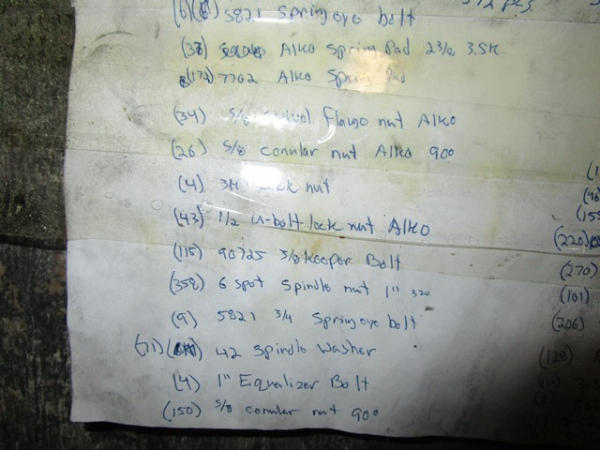 5821 Spring eye bolt
Alko Spring Pad 2 3/8 3.5K
7702 Alko Spring Pad
(34) 5/8 Flange nut Alko
(26) 5/8 conular nut Alko 90°
(4) nut
(43) 1/2 u-bolt lock nut Alko
(115) 90725 5/8 Keeper Bolt
(358) 6 spot Spindle nut 1"
(9) 5821 3/4 Spring eye bolt
(71) 42 Spindle Washer
(4) 1" Equalizer Bolt
(150) 5/8 conular nut 90°
(220)
(270)
(101)
(206)
(128)